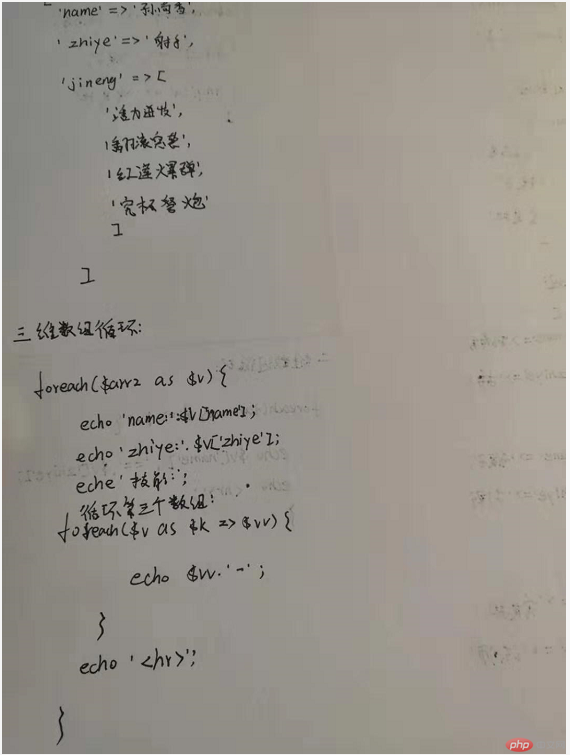 'name' => '孙尚香',
'zhiye' => '射手',
'jineng' => [
'活力迸发',
'翻滚突袭',
'红莲爆弹',
'究极弩炮'
]
]
三维数组循环:
foreach($arr2 as $v){
echo 'name:'.$v['name'];
echo 'zhiye:'.$v['zhiye'];
echo '技能:';
循环第三个数组:
foreach($v as $k => $vv){
echo $vv.'-';
}
echo '<hr>';
}
php